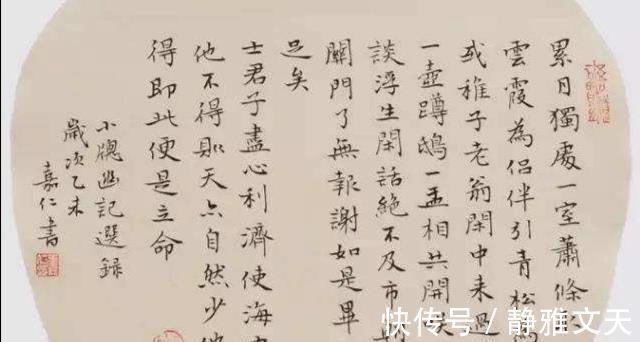 累日獨處一室蕭條
雲霞為侶伴引青松為
或稚子老翁閑中來過
一壺蹲鴟一盂相共開
談浮生閑話絕不及市
關門了無報謝如是畢
足矣
士君子盡心利濟使海
他不得則天亦自然少他
得即此便是立命
小窻幽記選錄
歲次乙未
嘉仁書
快传号 / 静雅文天